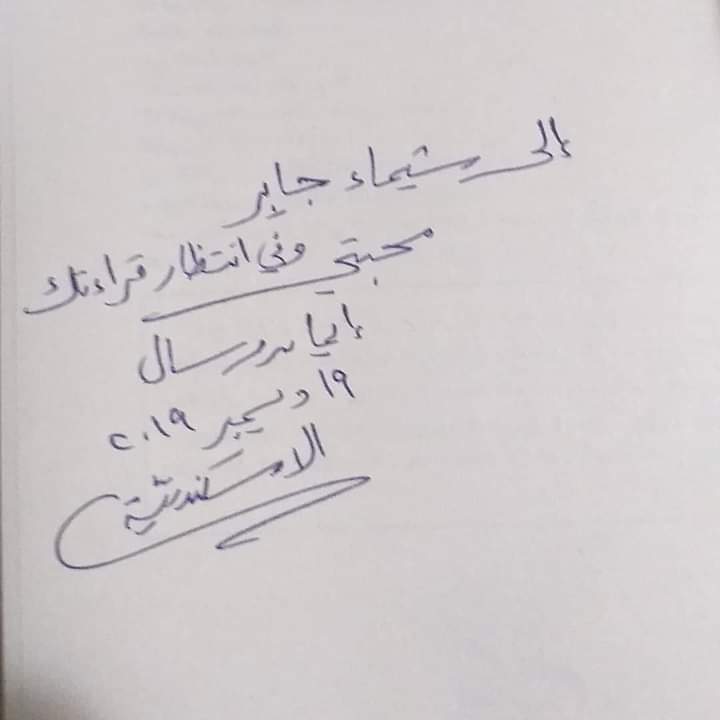 إلى شيماء جابر
محبتي وفي انتظار قراءتك
إيمان مرسال
١٩ ديسمبر ٢٠١٩
الاسكندرية